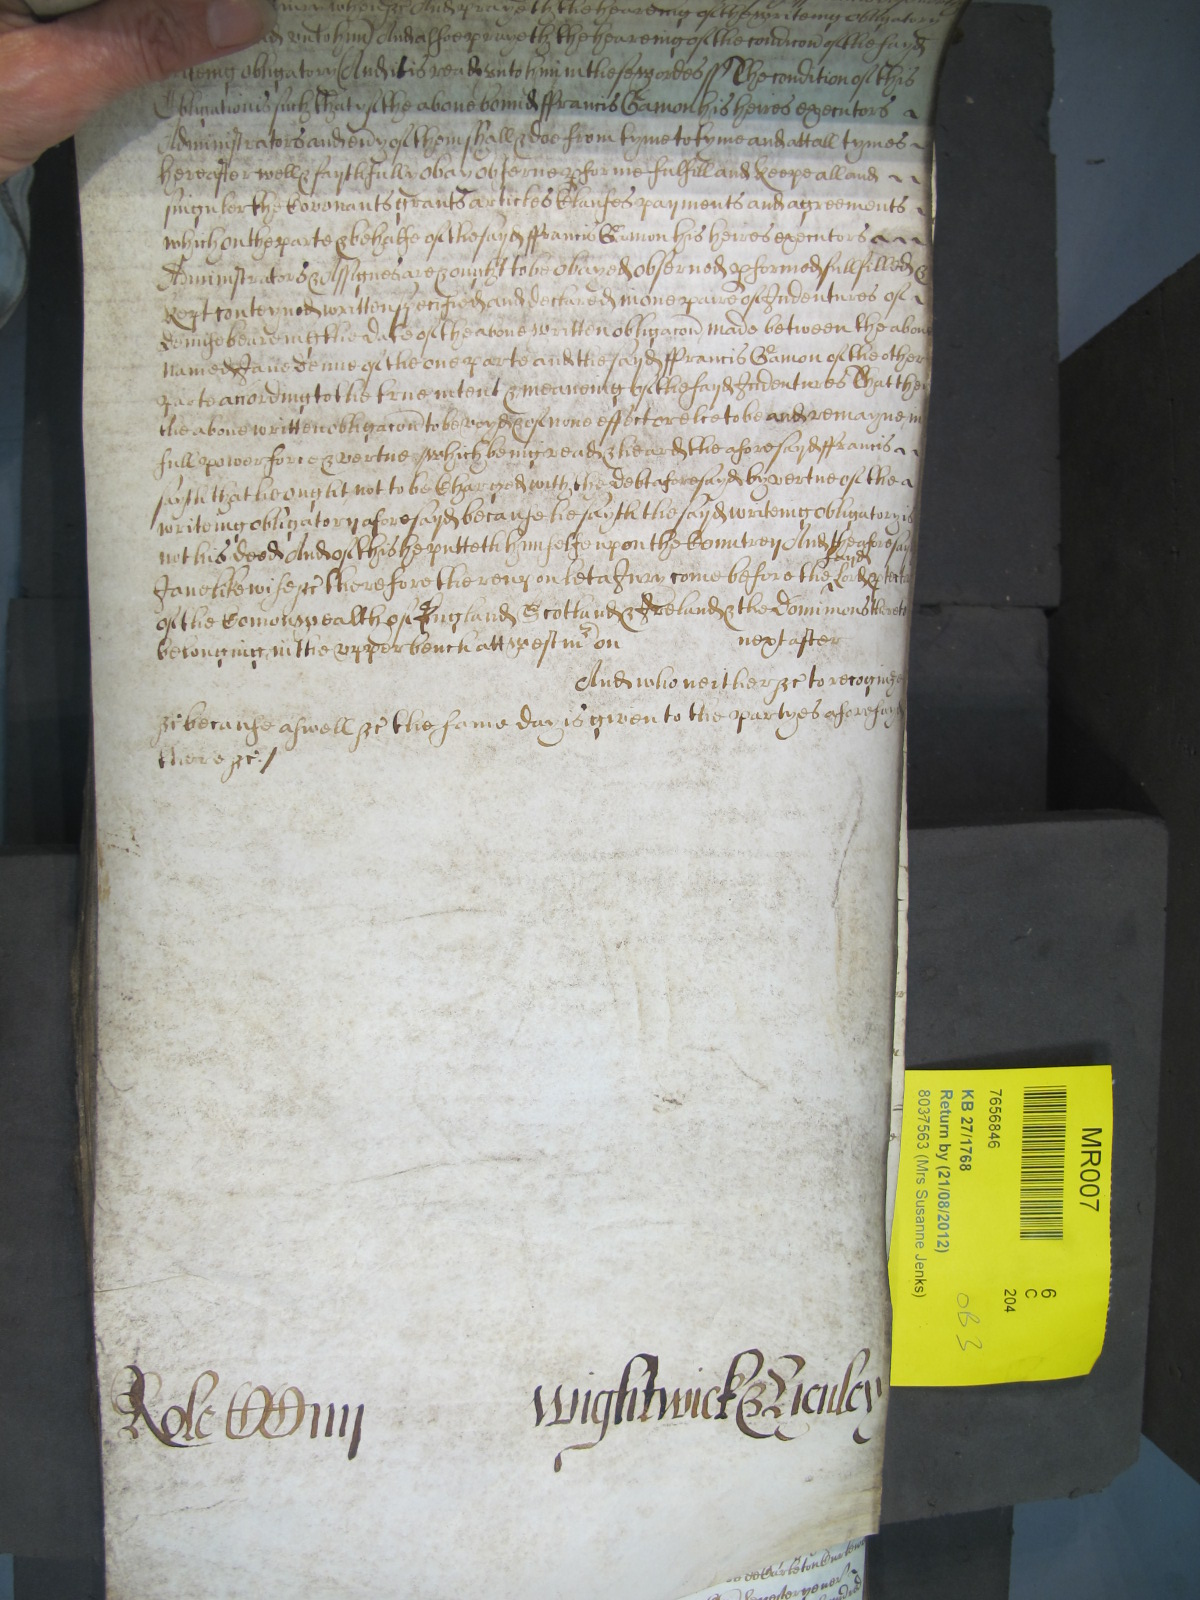 Jury when &c And prayeth the heareing of the writeing obligatory
read unto him And alsoe prayeth the heareing of the condicon of the sayd
writeing obligatory And it is read unto him in these wordes // The condition of this
Obligation is such that yf the above bound ffrancis Gamon his heires executors
Administrators and every of them shall & doe from tyme to tyme and att all tymes
hereafter well & faythfully obay observe pforme fulfill and keepe all and
singuler the Covenants grants articles Clauses payments and agreements
which on the parte & behalfe of the sayd ffrancis Gamon his heires executors
Administrators & Assignes are & ought to be obayed observed pformed fullfilled &
kept conteyned written specified and declared in one paire of Indentures of
beareing the date of the above written obligacon made between the above
named Jane Venne of the one parte and the sayd ffrancis Gamon of the other
parte acording to the true intent & meaneing of the sayd Indentures That then
the above written obligacon to be voyd & of none effect or else to be and remayne in
full power force & vertue which being read & heard the aforesayd ffrancis
sayth that he ought not to be Charged with the debt aforesayd by vertue of the
writeing obligatory aforesayd because he sayth the sayd writeing obligatory is
not his deed And of this he putteth himselfe upon the Countrey And the aforesayd
Jane likewise &c therefore thereupon let a Jury come before the sayd Lord protector
of the Comonwealth of England Scotland & Ireland & the Dominions thereto
belonging in the upper bench att Westmr on next after
And who neither &c to recognize
&c because aswell &c the same day is given to the partyes aforesayd
there &c /
Role CCCiiij Wightwick & Eienley
MR007
6
C
204
7656846
KB 27/1768
Return by (21/08/2012)
8037563 (Mrs Susanne Jenks)
OB 3